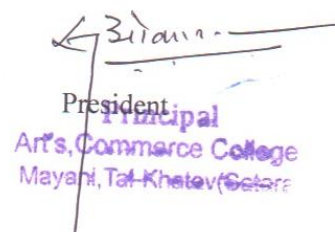 President
Principal
Art's, Commerce College
Mayani, Tal-Khatav(Satara